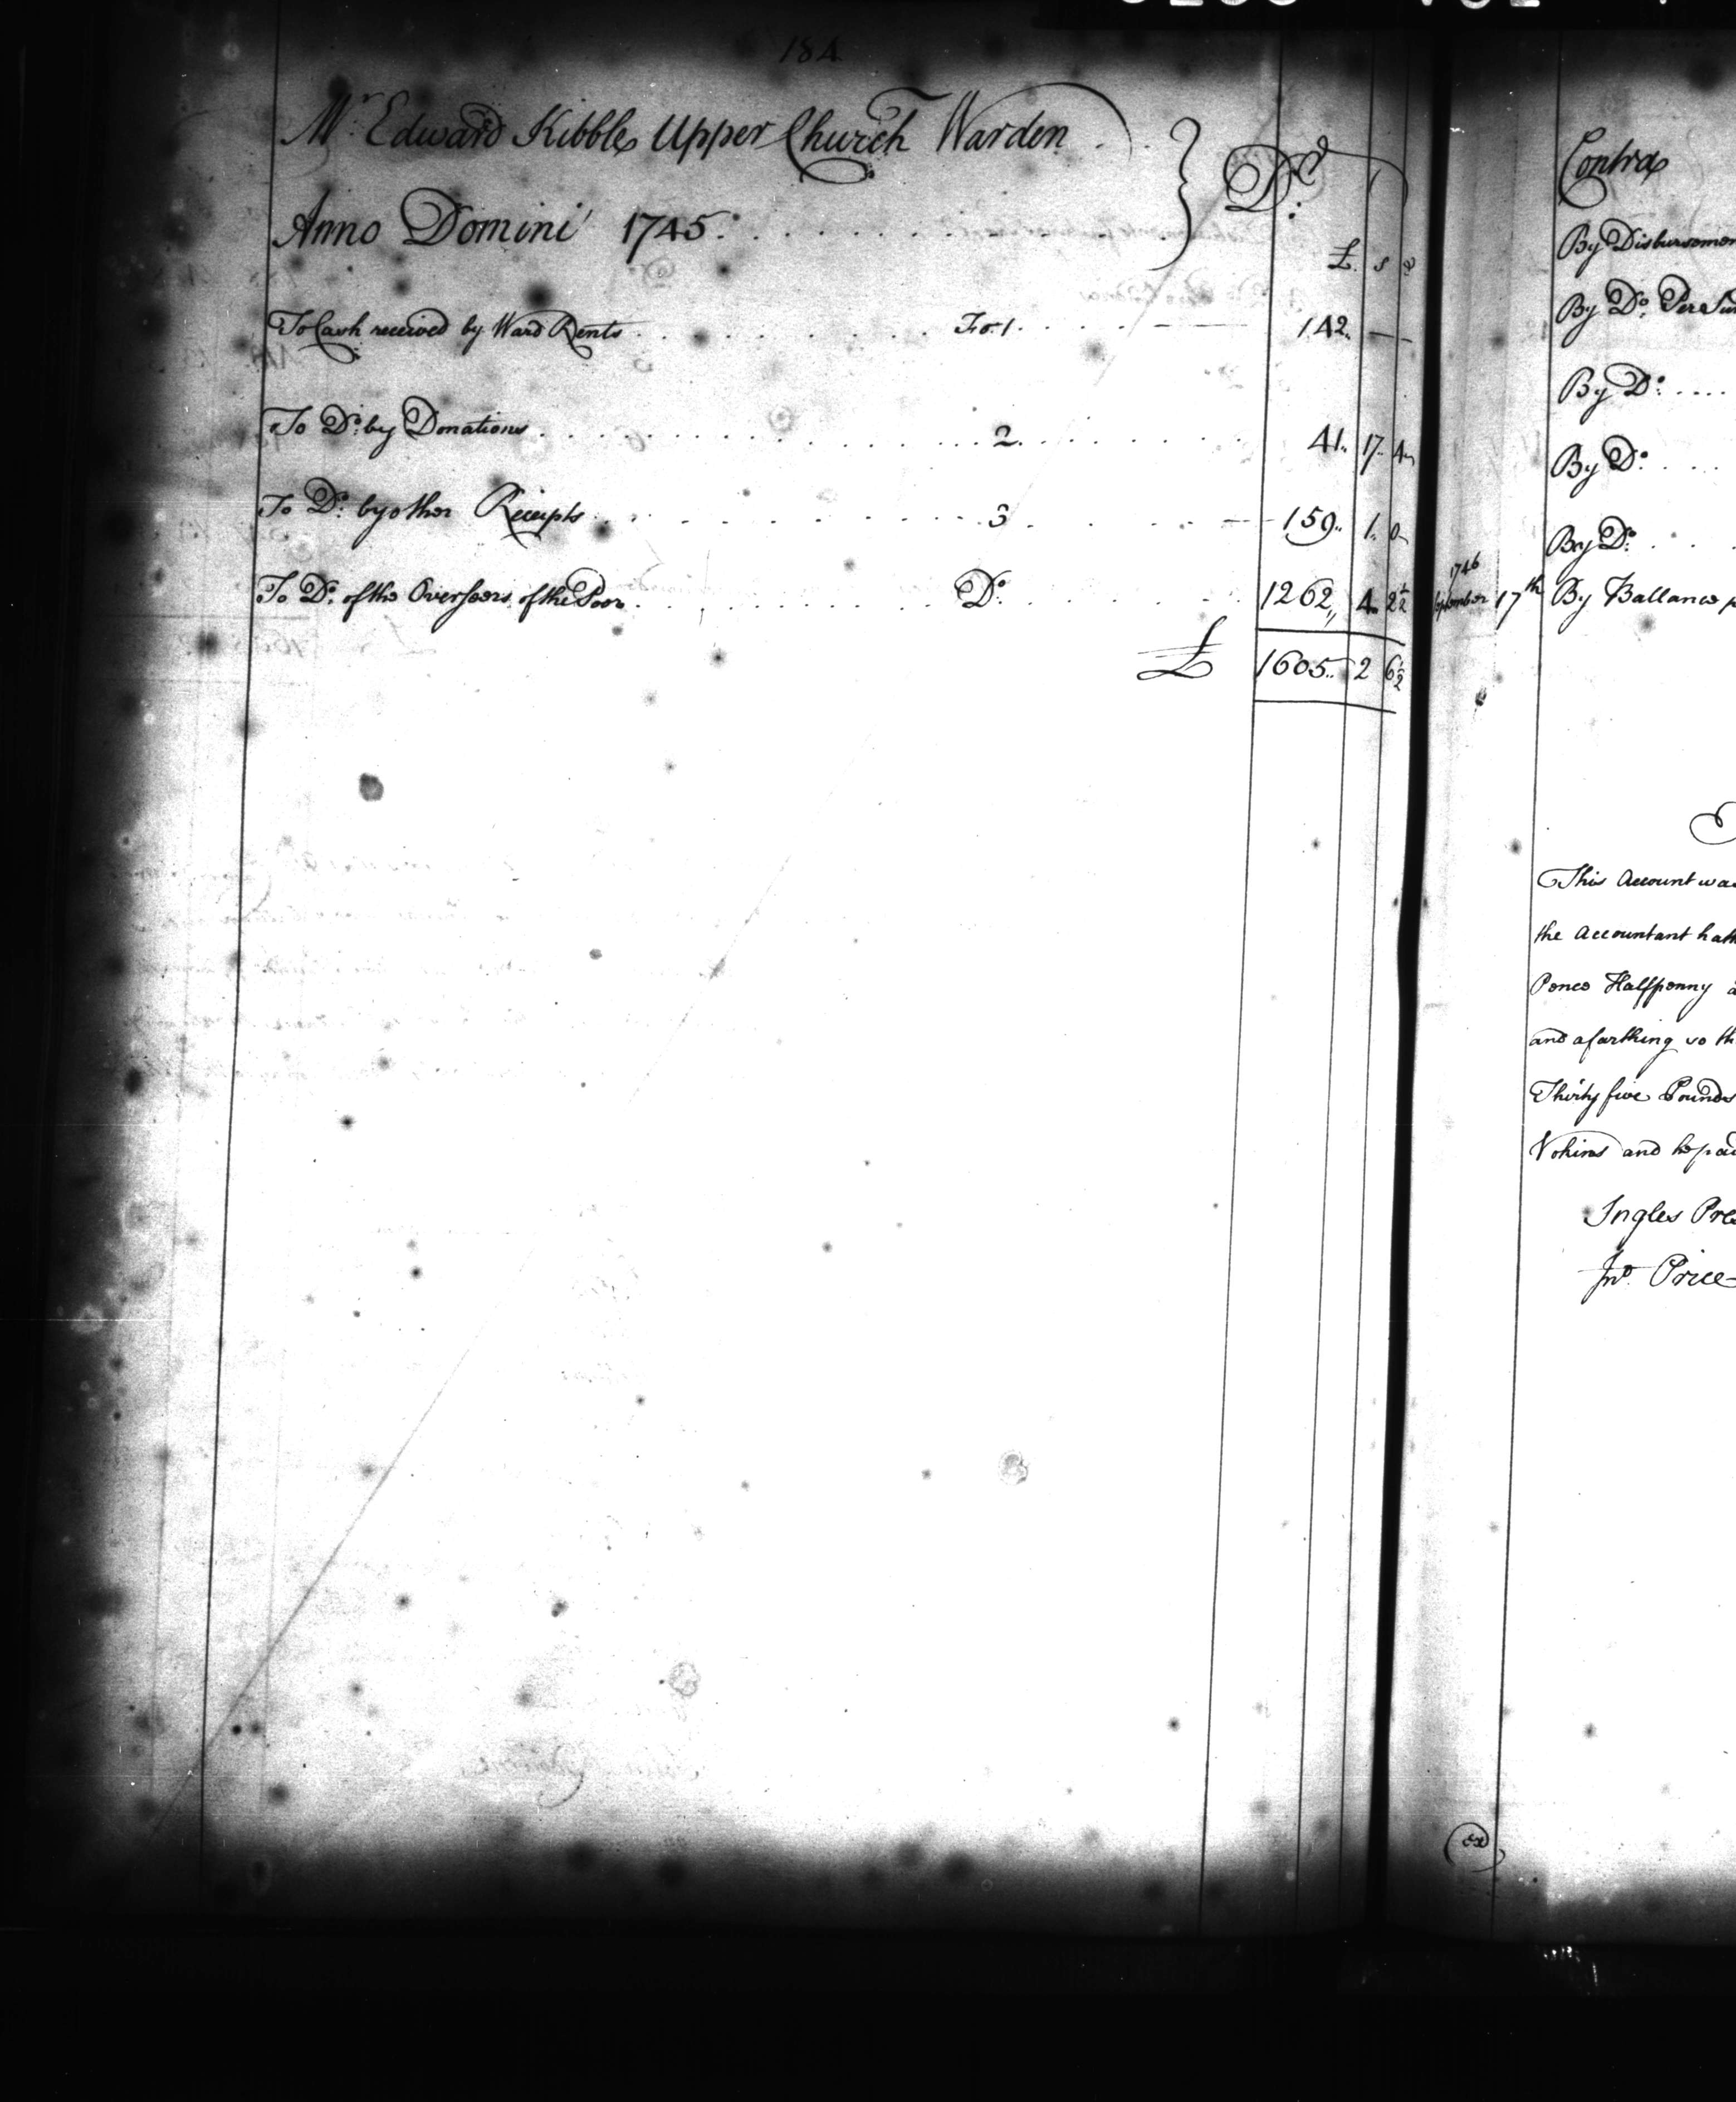 184
Mr. Edward Kibble Upper Church Warden
Anno Domini 1745. Dr.
£. s d
To Cash received by Ward Rents Fo. 1. 142. — —
To Do. by Donations 2. 41. 17. 4
To Do. by other Receipts 3 159. 1. 0
To Do. of the Overseers of the Poor Do. 1262,, 4 2½
£ 1605. 2 6½
Contra
By Disbursemen
By Do. Per
By Do. ....
By Do. ...
By Do. ...
1746
September 17th By Ballance p
This Account was
the Accountant hath
Pence Halfpenny
and a farthing so th
Thirty five Pounds
and he pai
Ingles Pre
Jno. Price